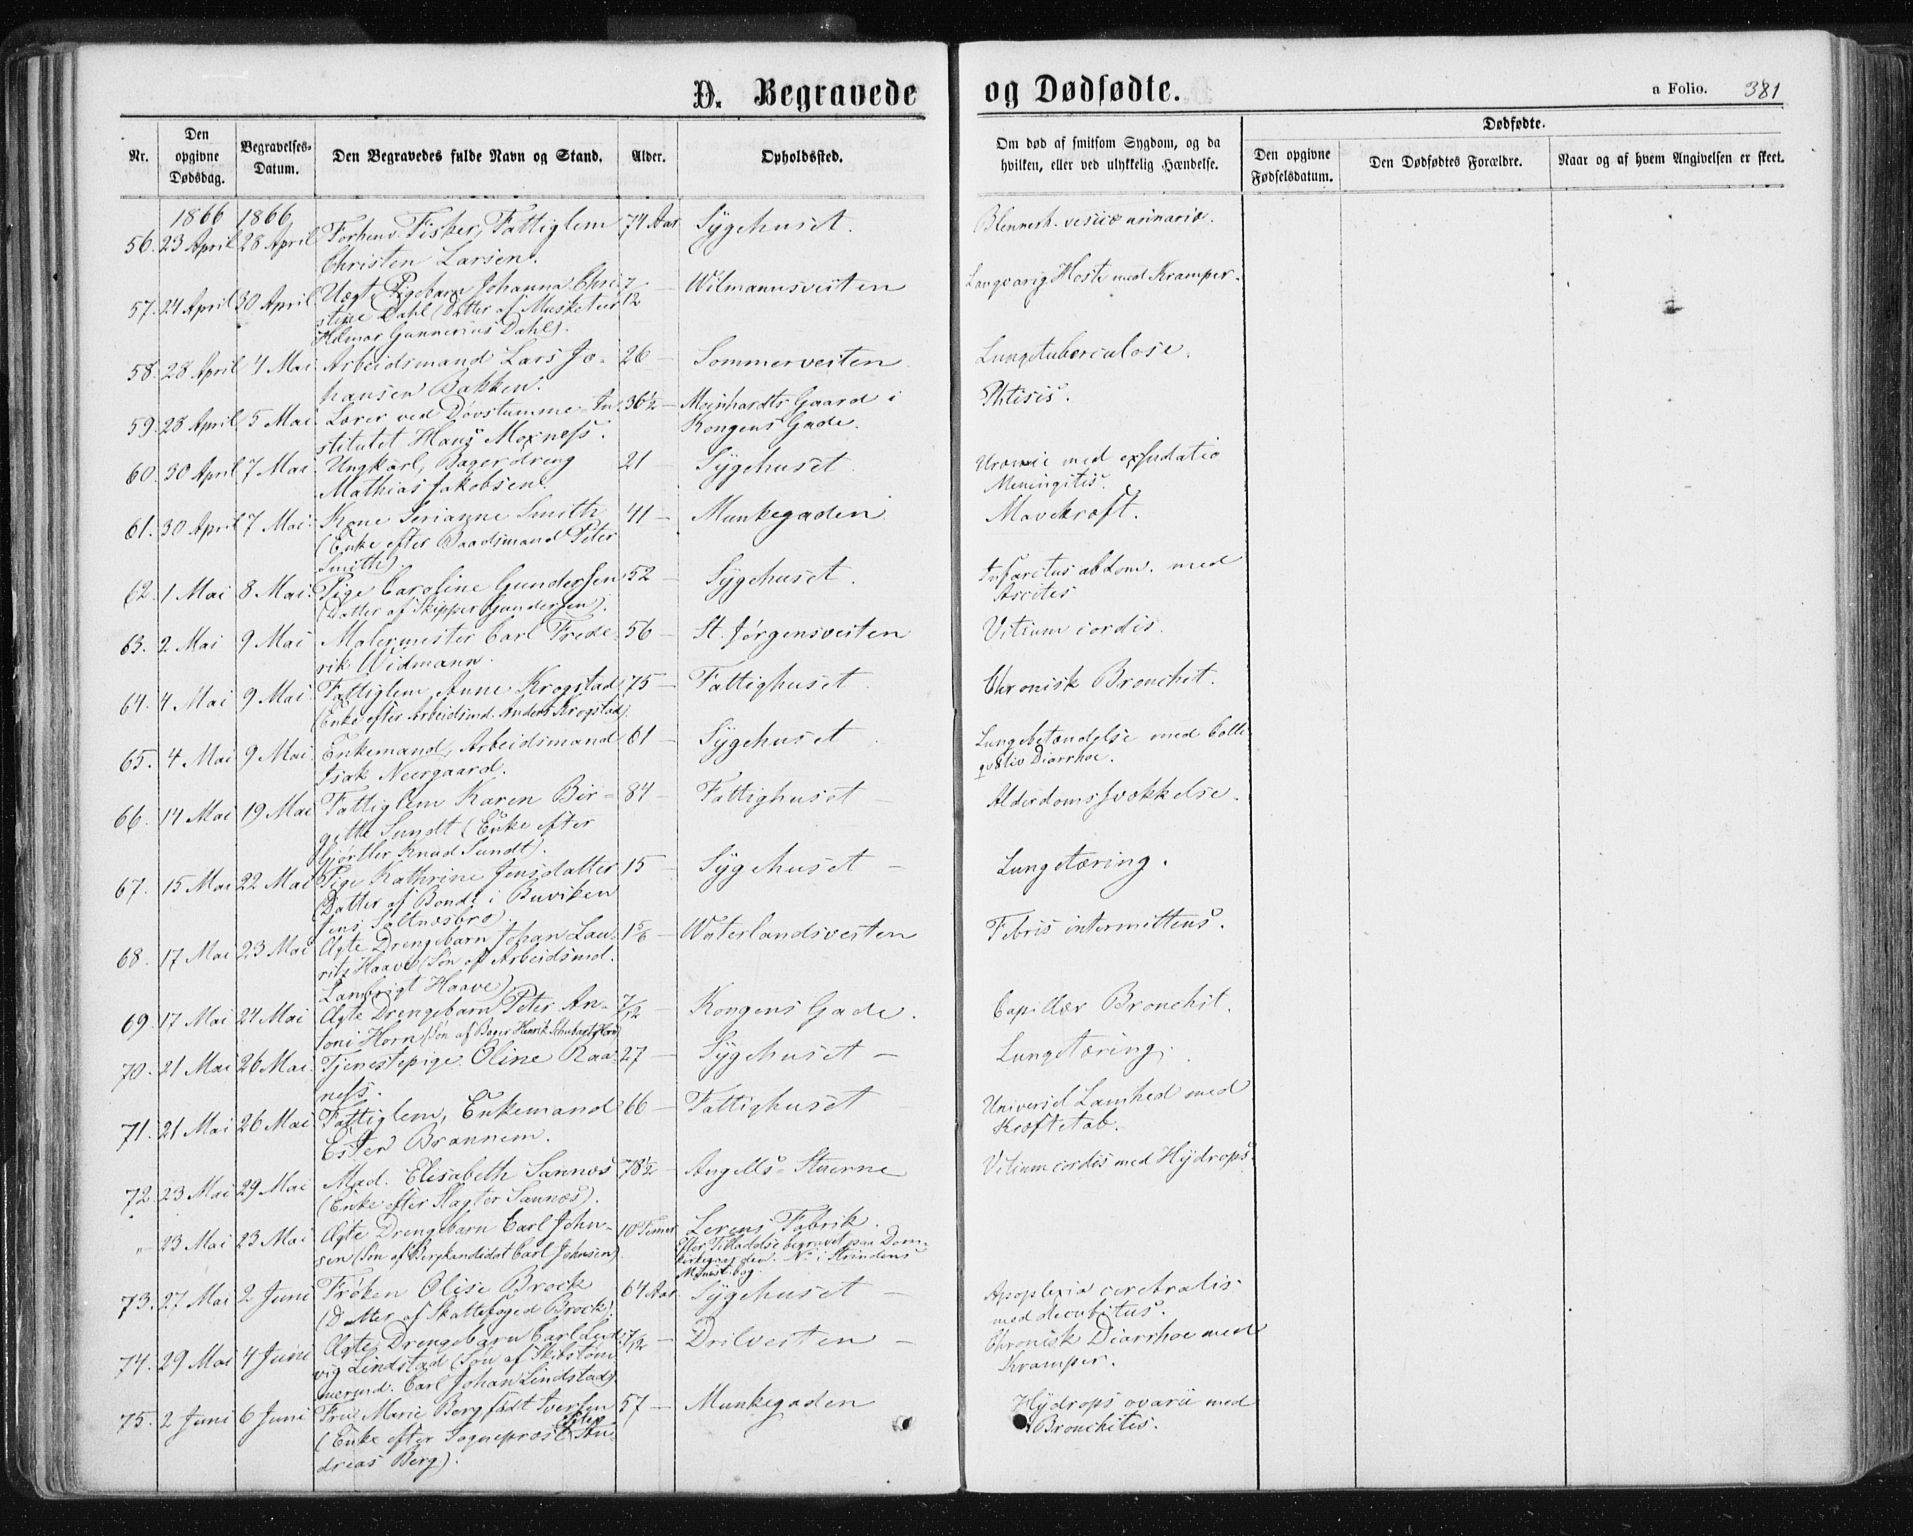 D. Begravede og Dødfødte.
a Folio. 381
Nr.
Den opgivne Dødsdag.
Begravelses-Datum.
Den Begravedes fulde Navn og Stand.
Alder.
Opholdssted.
Om død af smitsom Sygdom, og da hvilken, eller ved ulykkelig Hændelse.
Dødfødte.
Den opgivne Fødselsdatum.
Den Dødfødtes Forældre.
Naar og af hvem Angivelsen er skeet.
1866 1866
56. 23 April 28 April Forhenv. Fisker, Fattiglem 74 Aar Sygehuset. Blennorh. vesicæ urinariæ.
Christen Larsen.
57. 24 April 30 April Uægt. Pigebarn Johanna Chri- 7/12 — Wilmannsveiten Langvarig Hoste med Kramper.
stine Dahl (Datter af Musketeer
Hilmar Gunnerius Dahl).
58. 28 April 4 Mai Arbeidsmand Lars Jo- 26 — Sommerveiten Lungetuberculose.
hansen Bakken.
59. 28 April 5 Mai Lærer ved Døvstumme-In- 36½ — Meinhardts Gaard i Phtisis.
stitutet Hans Moxness. Kongens Gade.
60. 30 April 7 Mai Ungkarl, Bagerdreng 21 — Sygehuset Uræmie med exsudatio
Mathias Jakobsen. Meningitis.
61. 30 April 7 Mai Kone Serianne Smith 41 — Munkegaden Mavekræft.
(Enke efter Baadsmand Peter
Smith).
62. 1 Mai 8 Mai. Pige Caroline Gundersen 52 — Sygehuset. Infarctus abdom. med
(Datter af Skipper Gundersen). Ascites
63. 2 Mai 9 Mai Malermester Carl Frede- 56 — St. Jørgensveiten Vitium cordis.
rik Widmann.
64. 4 Mai 9 Mai. Fattiglem Anne Krogstad 75 — Fattighuset. Chronisk Bronchit.
(Enke efter Arbeidsmd. Anders Krogstad)
65. 4 Mai 9 Mai. Enkemand, Arbeidsmand 61 — Sygehuset Lungebetændelse med Colli-
Isak Neergaard. qvativ Diarrhoe.
66. 14 Mai 19 Mai Fattiglem Karen Bir- 84 — Fattighuset — Alderdomssvækkelse.
gitte Sundt (Enke efter
Gjørtler Knud Sundt).
67. 15 Mai 22 Mai Pige Kathrine Jensdatter 15 — Sygehuset — Lungetæring.
(Datter af Bonde i Buviken
Jens Saltnæsbro).
68. 17 Mai 23 Mai Ægte Drengebarn Johan Lau- 1 5/6 — Waterlandsveiten Febris intermittens.
ritz Haave (Søn af Arbeidsmd.
Lambrigt Haave)
69. 17 Mai 24 Mai Ægte Drengebarn Peter An- 7/12 — Kongens Gade. Capillær Bronchit.
toni Horn (Søn af Bager Henrik Horn)
70. 21 Mai 26 Mai. Tjenestepige Oline Raa- 27 — Sygehuset — Lungetæring.
ness.
71. 21 Mai 26 Mai Fattiglem, Enkemand 66 — Fattighuset Universel Lamhed med
Esten Brannem. Kræftetab.
72. 23 Mai 29 Mai Mad. Elisabeth Sannæs 78½ — Angells Stuerne Vitium cordis med Hydrops
(Enke efter Slagter Sannæs).
" 23 Mai 23 Mai Ægte Drengebarn Carl John- 10 Timer Lerens Fabrik.
sen (Søn af Bergkandidat Carl Johnsen) Efter Tilladelse begravet paa Dom-
kirkegaarden. No i Strindens
Minist.bog.
73. 27 Mai 2 Juni Frøken Olise Brock 64 Aar Sygehuset — Apoplexia cerebralis
(Datter af Skattefoged Brock). med decubitus.
74. 29 Mai 4 Juni Ægte Drengebarn Carl Lud- 7/12 — Drilveiten — Chronisk Diarrhoe med
vig Lindstad (Søn af Skibstøm- Kramper.
mermd. Carl Johan Lindstad)
75. 2 Juni 6 Juni Fru Marie Berg født Iversen 57 — Munkegaden Hydrops ovarii med
(Enke efter Sognepræst An- Bronchites.
dreas Berg).